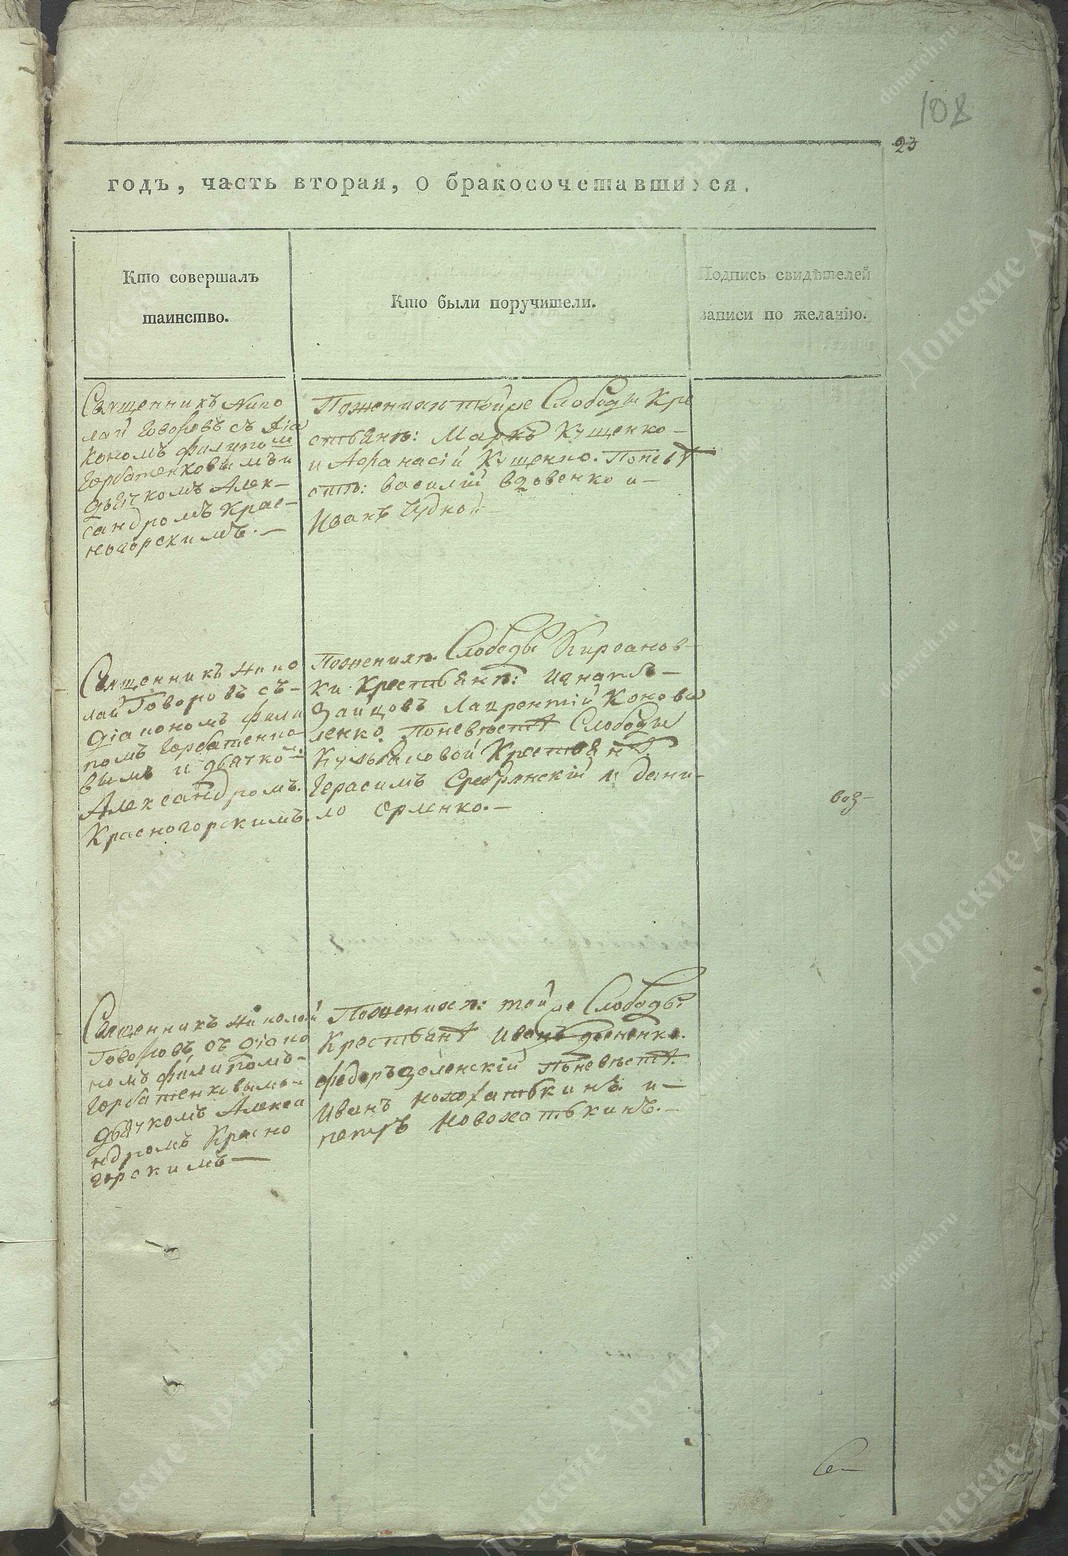 108
23
годъ, часть вторая, о бракосочетавшихся.
Кто совершалъ
таинство.
Кто были поручители.
Подпись свидѣтелей
записи по желанію.
Священникъ Нико
лай Говоровъ съ діа
кономъ Филипом
Горбатенковымъ и
дьячкомъ Алек-
сандромъ Крас-
ногорскимъ.—
Поженихи тойже Слободы Кре
стьянъ: Маркъ Кущенко-
и Афанасій Кущенко. Поневѣ
стѣ: Василій Вдовенко и-
Иванъ Чудной
Священникъ Нико
лай Говоровъ съ-
діакономъ Фили
помъ Горбатенко
вымъ и дьячко
Александромъ
Красногорскимъ.
Поженихѣ Слободы Кирсанов-
ки Крестьянъ:
Зайцовъ Лаврентій Конова
ленко. Поневѣстѣ Слободы
Крестьянъ
Герасимъ Сребрянскій и Дани-
ло Орленко.—
воз-
Священникъ Николай
Говоровъ съ діако
номъ Филипомъ-
Горбатенковымъ-
дьячкомъ Алекса
ндромъ Красно
горскимъ—
Поженихѣ: тойже Слободы
Крестьянъ Иванъ
Федоръ Зеленскій Поневѣстѣ
Иванъ и-
петръ Новохатькинъ.—
донские Архивы
donarch.ru